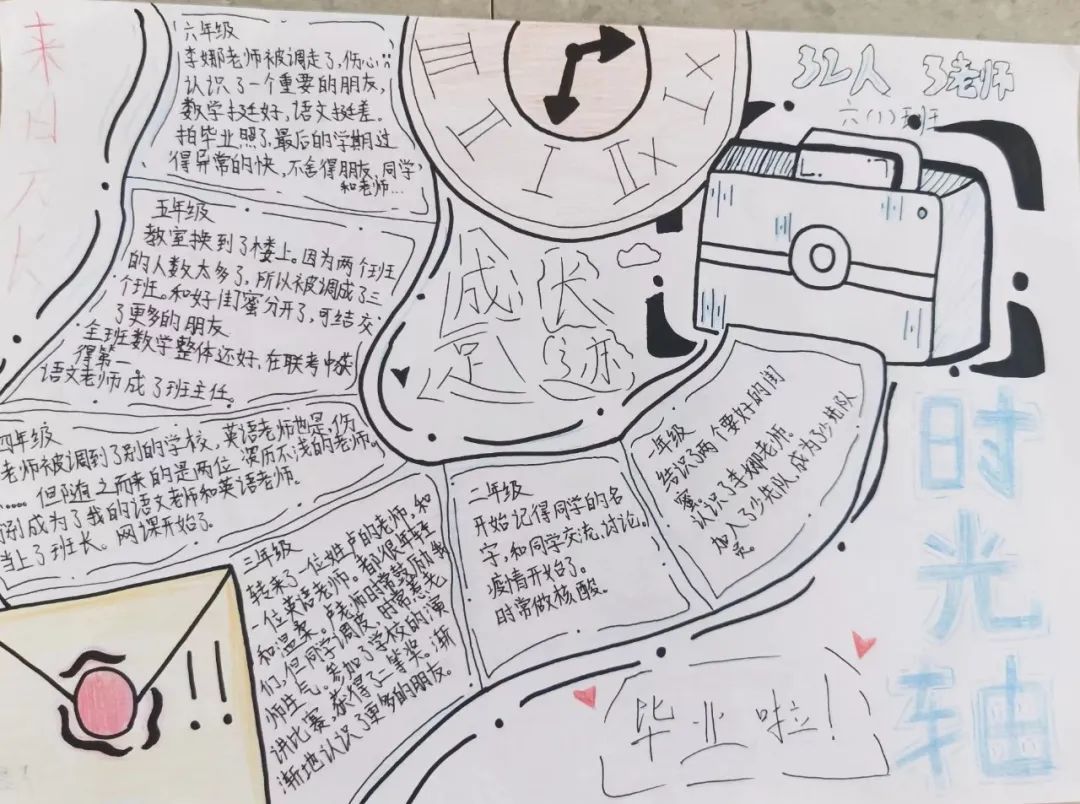 来日无长
六年级
李娜老师被调走了,伤心
认识了一个重要的朋友,
数学挺好,语文挺差。
拍毕业照了,最后的学期过
得异常的快,不舍得朋友,同学
和老师...
五年级
教室换到了楼上。因为两个班
的人数太多了,所以被调成了三
个班。和好闺蜜分开了,可结交
了更多的朋友
全班数学整体还好,在联考中获
得第一
语文老师成了班主任。
四年级
老师被调到了别的学校,英语老师也是,伤
......但随之而来的是两位资历不浅的老师。
成为了我的语文老师和英语老师。
当上了班长。网课开始了。
三年级
转来了一位姓卢的老师。和
一位英语老师。都很年轻
和温柔。卢老师时常鼓励我
们,但同学调皮,时常惹老
师生气,参加了学校的演
讲比赛,获得了一等奖。渐
渐地认识了更多的朋友。
二年级
开始记得同学的名
字,和同学交流,讨论。
疫情开始了。
时常做核酸。
一年级
结识了两个要好的闺
蜜,认识了李娜老师。
加入了少先队,成为了少先队
员。
成长
足迹
III
II
I
IX
X
六(1)班
时光轴
毕业啦!
!!